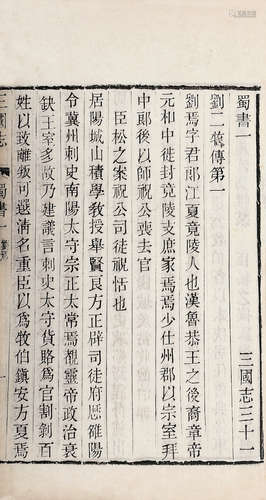 蜀書一 三國志三十一
劉二舊傳第一
劉焉字君郎江夏竟陵人也漢魯恭王之後裔章帝
元和中徙封竟陵支庶家焉焉少仕州郡以宗室拜
中郎後以師祝公喪去官
臣松之案祝公司徒祝恬也
居陽城山積學教授舉賢良方正辟司徒府歷雒陽
令冀州刺史南陽太守宗正太常焉覩靈帝政治衰
缺王室多故乃建議言刺史太守貨賂爲官割剝百
姓以致離叛可選清名重臣以爲牧伯鎮安方夏焉
三國志 蜀書一